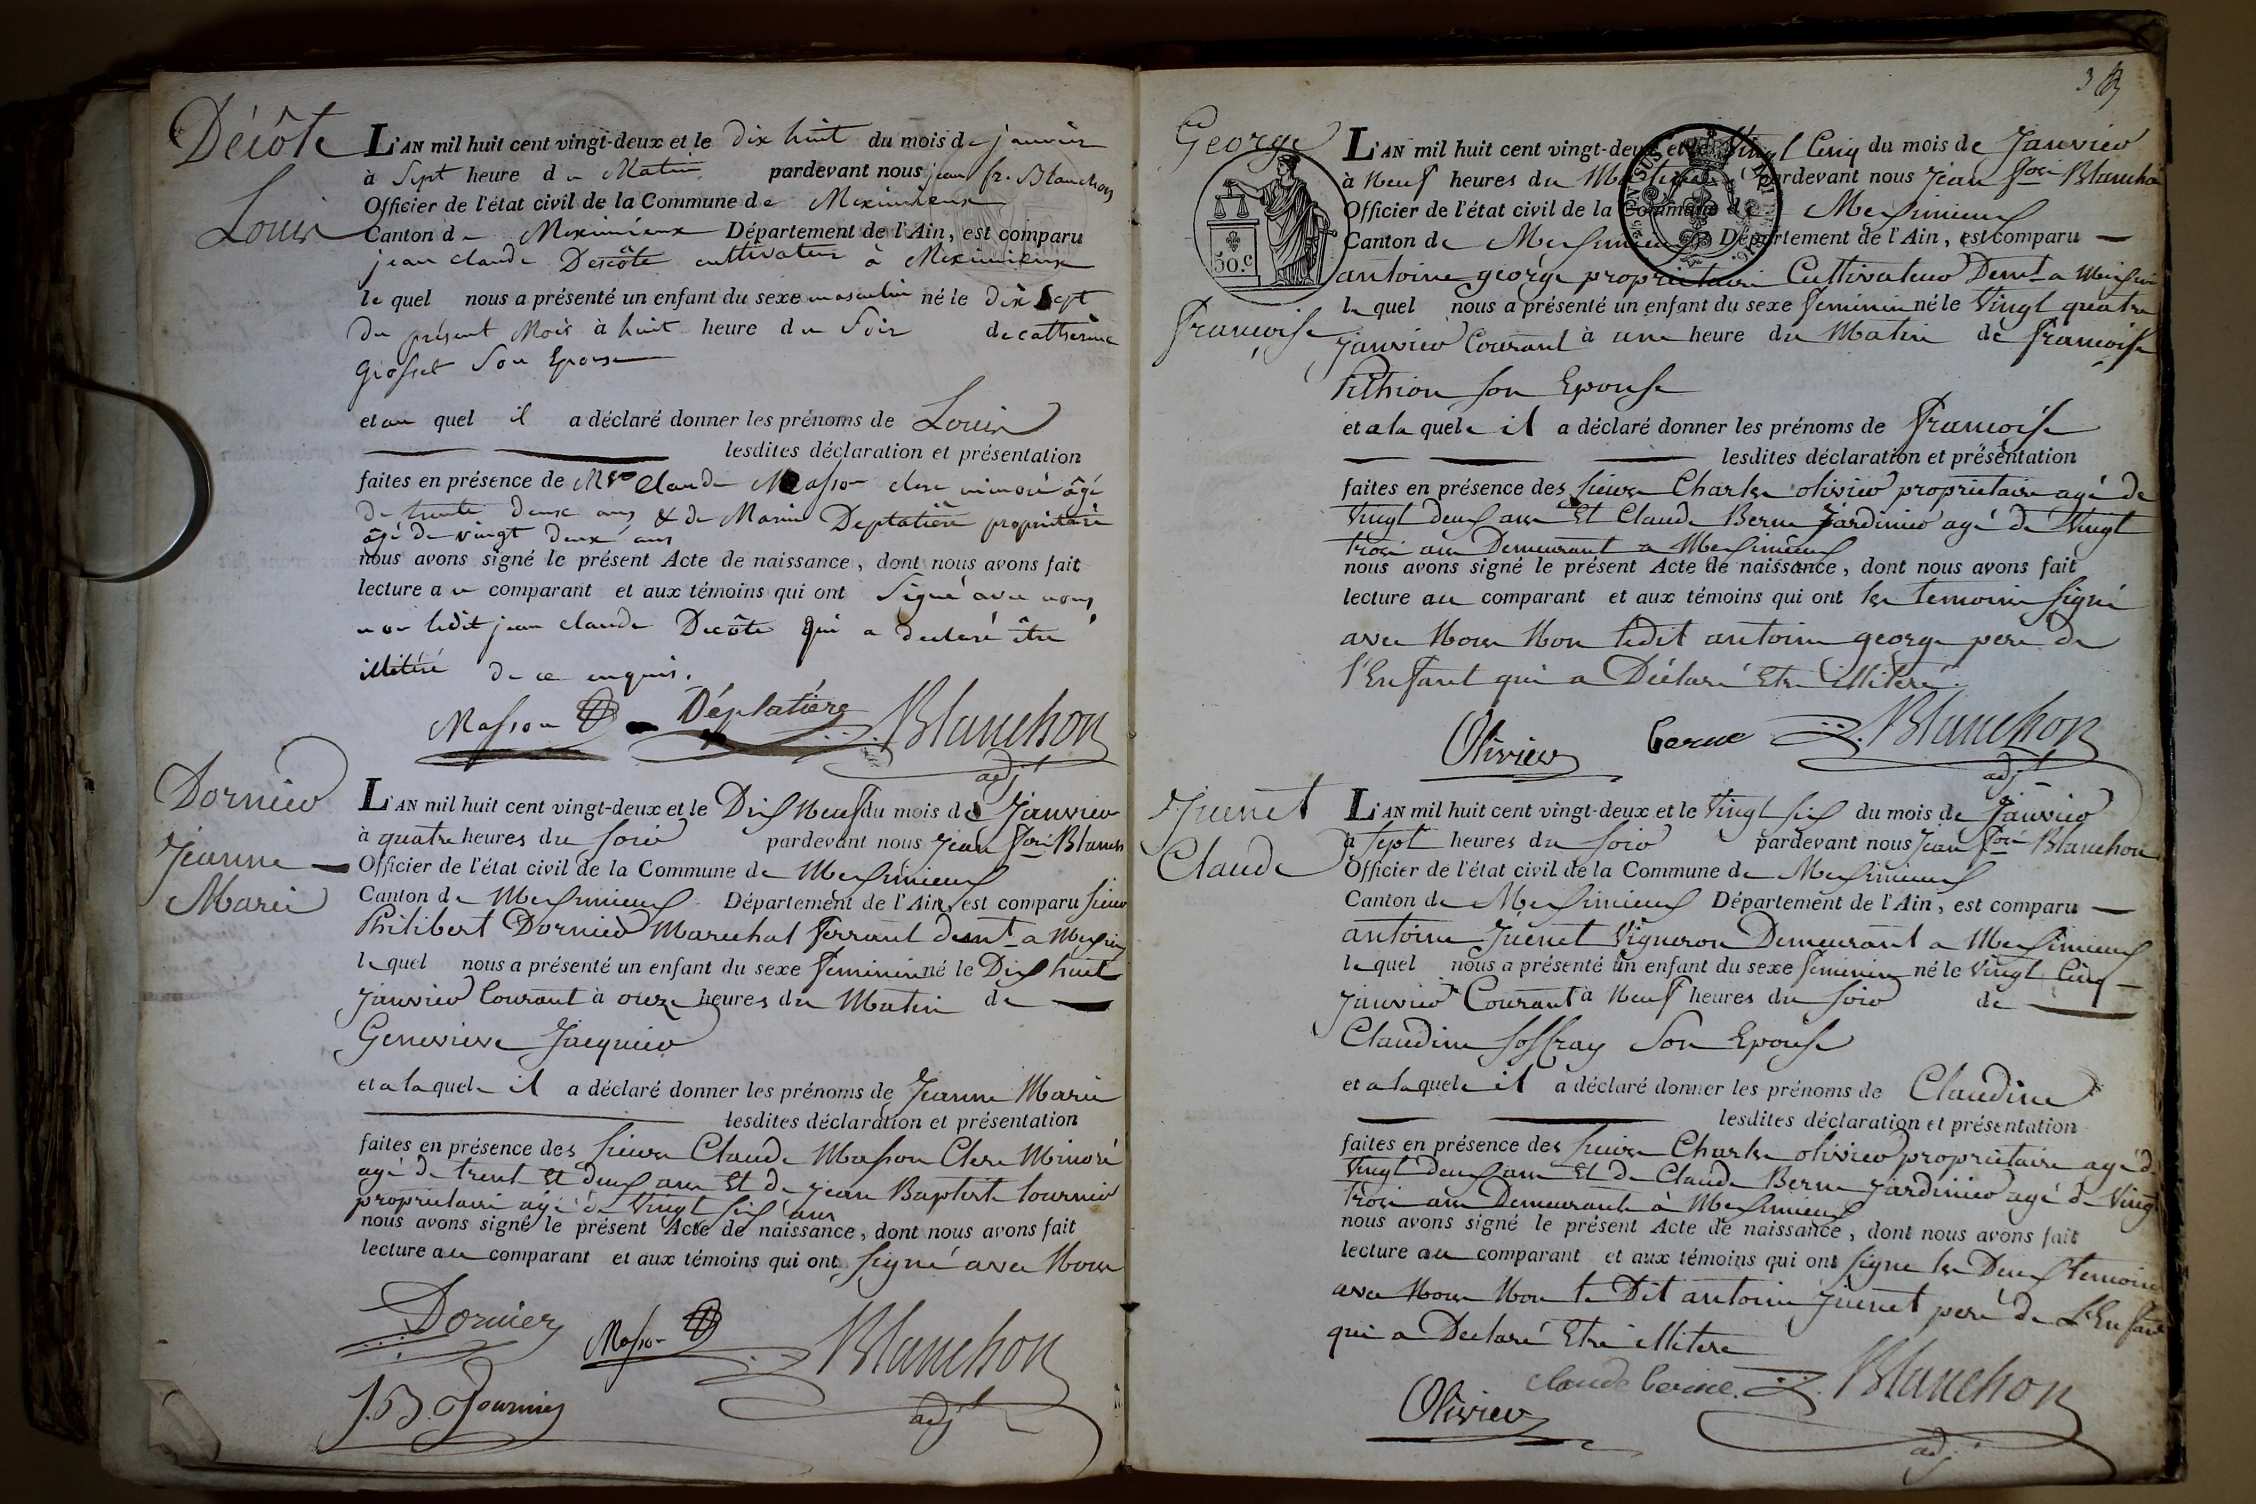 Décôte
Louis
L'AN mil huit cent vingt-deux et le dix huit du mois de janvier
à Sept heure du Matin pardevant nous jean fr. Blanchon
Officier de l'état civil de la Commune de Meximieux
Canton de Meximieux Département de l'Ain, est comparu
jean claude Descôte cultivateur à Meximieux
le quel nous a présenté un enfant du sexe masculin né le dix Sept
du présent Mois à huit heure du Soir de catherine
Grosset Son Epouse
et au quel il a déclaré donner les prénoms de Louis
lesdites déclaration et présentation
faites en présence de Mre Claude Masson clerc minoré âgé
de trente deux ans & de Marin Deplatière propriétaire
âgé de vingt deux ans
nous avons signé le présent Acte de naissance, dont nous avons fait
lecture au comparant et aux témoins qui ont Signé avec nous
non ledit jean claude Decôte qui a declaré être
illitéré de ce enquis.
Masson Déplatière Blanchon
adjt
Dornier
Jeanne
Marie
L'AN mil huit cent vingt-deux et le Dix Neuf du mois de Janvier
à quatre heures du soir pardevant nous Jean fois Blanch
Officier de l'état civil de la Commune de Meximieux
Canton de Meximieux Département de l'Ain, est comparu sieur
Philibert Dornier Marechal ferrant demt a Mexim
le quel nous a présenté un enfant du sexe feminin né le Dix huit
janvier Courant à onze heures du Matin de
Genevieve Jacquier
et a la quele il a déclaré donner les prénoms de Jeanne Marie
lesdites déclaration et présentation
faites en présence des sieurs Claude Masson Clerc Minoré
agé de trent et deux ans Et de jean Baptiste tournier
proprietaire agé de Vingt six ans
nous avons signé le présent Acte de naissance, dont nous avons fait
lecture au comparant et aux témoins qui ont signé avec Nous
Dornier Masson Blanchon
J.B. Tournier adjt
3
George
Françoise
50.c
L'AN mil huit cent vingt-deux et le Vingt Cinq du mois de Janvier
à Neuf heures du Matin pardevant nous Jean fois Blancho
Officier de l'état civil de la Commune de Meximieux
Canton de Meximieux Département de l'Ain, est comparu
antoine george proprietaire Cultivateur Demt a Meximie
le quel nous a présenté un enfant du sexe feminin né le Vingt quatre
janvier Courant à une heure du Matin de françoise
Pithion son Epouse
et a la quele il a déclaré donner les prénoms de françoise
lesdites déclaration et présentation
faites en présence des sieurs Charles olivier proprietaire agé de
Vingt deux ans Et Claude Berne Jardinier agé de Vingt
trois ans Demeurant a Meximieux
nous avons signé le présent Acte de naissance, dont nous avons fait
lecture au comparant et aux témoins qui ont les temoins signé
avec Nous Non ledit antoine george pere de
l'Enfant qui a Déclaré Etre illiteré.
Olivier berne Blanchon
adjt
Juenet
Claude
L'AN mil huit cent vingt-deux et le Vingt six du mois de Janvier
à sept heures du soir pardevant nous Jean fois Blanchon
Officier de l'état civil de la Commune de Meximieux
Canton de Meximieux Département de l'Ain, est comparu
antoine Juenet Vigneron Demeurant a Meximieux
le quel nous a présenté un enfant du sexe feminin né le Vingt Cinq
janvier Courant à Neuf heures du soir de
Claudine Soffray Son Epouse
et a la quele il a déclaré donner les prénoms de Claudine
lesdites déclaration et présentation
faites en présence des sieurs Charles olivier proprietaire agé de
Vingt deux ans Et de Claude Berne jardinier agé de Vingt
trois ans Demeurants à Meximieux
nous avons signé le présent Acte de naissance, dont nous avons fait
lecture au comparant et aux témoins qui ont signe les Deux temoins
avec Nous Non le Dit antoine juenet peré de L'Enfant
qui a Declaré Etre illitere
Olivier claude berne. Blanchon
adj